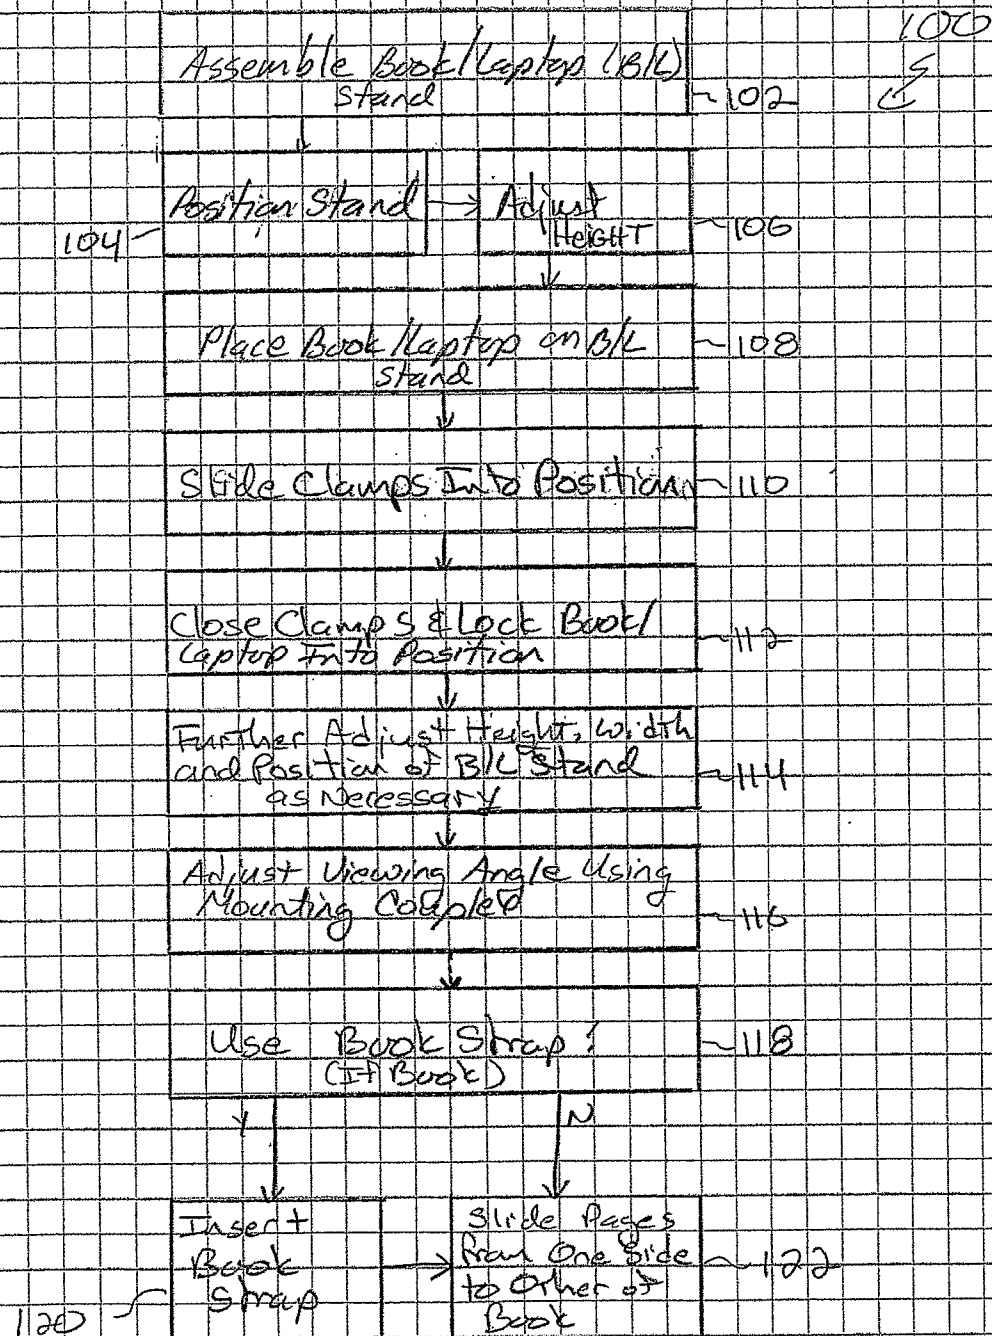 100
Assemble Book/Laptop (B/L)
Stand
102
Position Stand
104
Adjust
HEIGHT
106
Place Book/Laptop on B/L
Stand
108
Slide Clamps Into Position
110
Close Clamps & Lock Book/
Laptop Into Position
112
Further Adjust Height, Width
and Position of B/L Stand
as Necessary
114
Adjust Viewing Angle Using
Mounting Coupler
116
Use Book Strap?
(If Book)
118
Y
N
Insert
Book
Strap
120
Slide Pages
From One Side
to Other of
Book
122